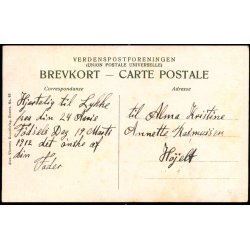 VERDENSPOSTFORENINGEN
(UNION POSTALE UNIVERSELLE)
BREVKORT — CARTE POSTALE
Correspondance
Adresse
Hjertelig til Lykke
paa din 24 Aars
Födsels Dag 19 Marts
1912 det önskes af
din
Fader
til Alma Kristine
Annette Rasmussen
Höjelt